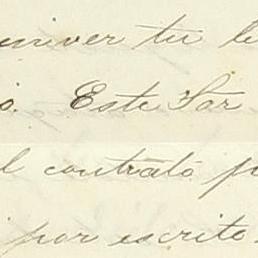 univer tu le
o. Este Sor
l contrato p
por escrito.